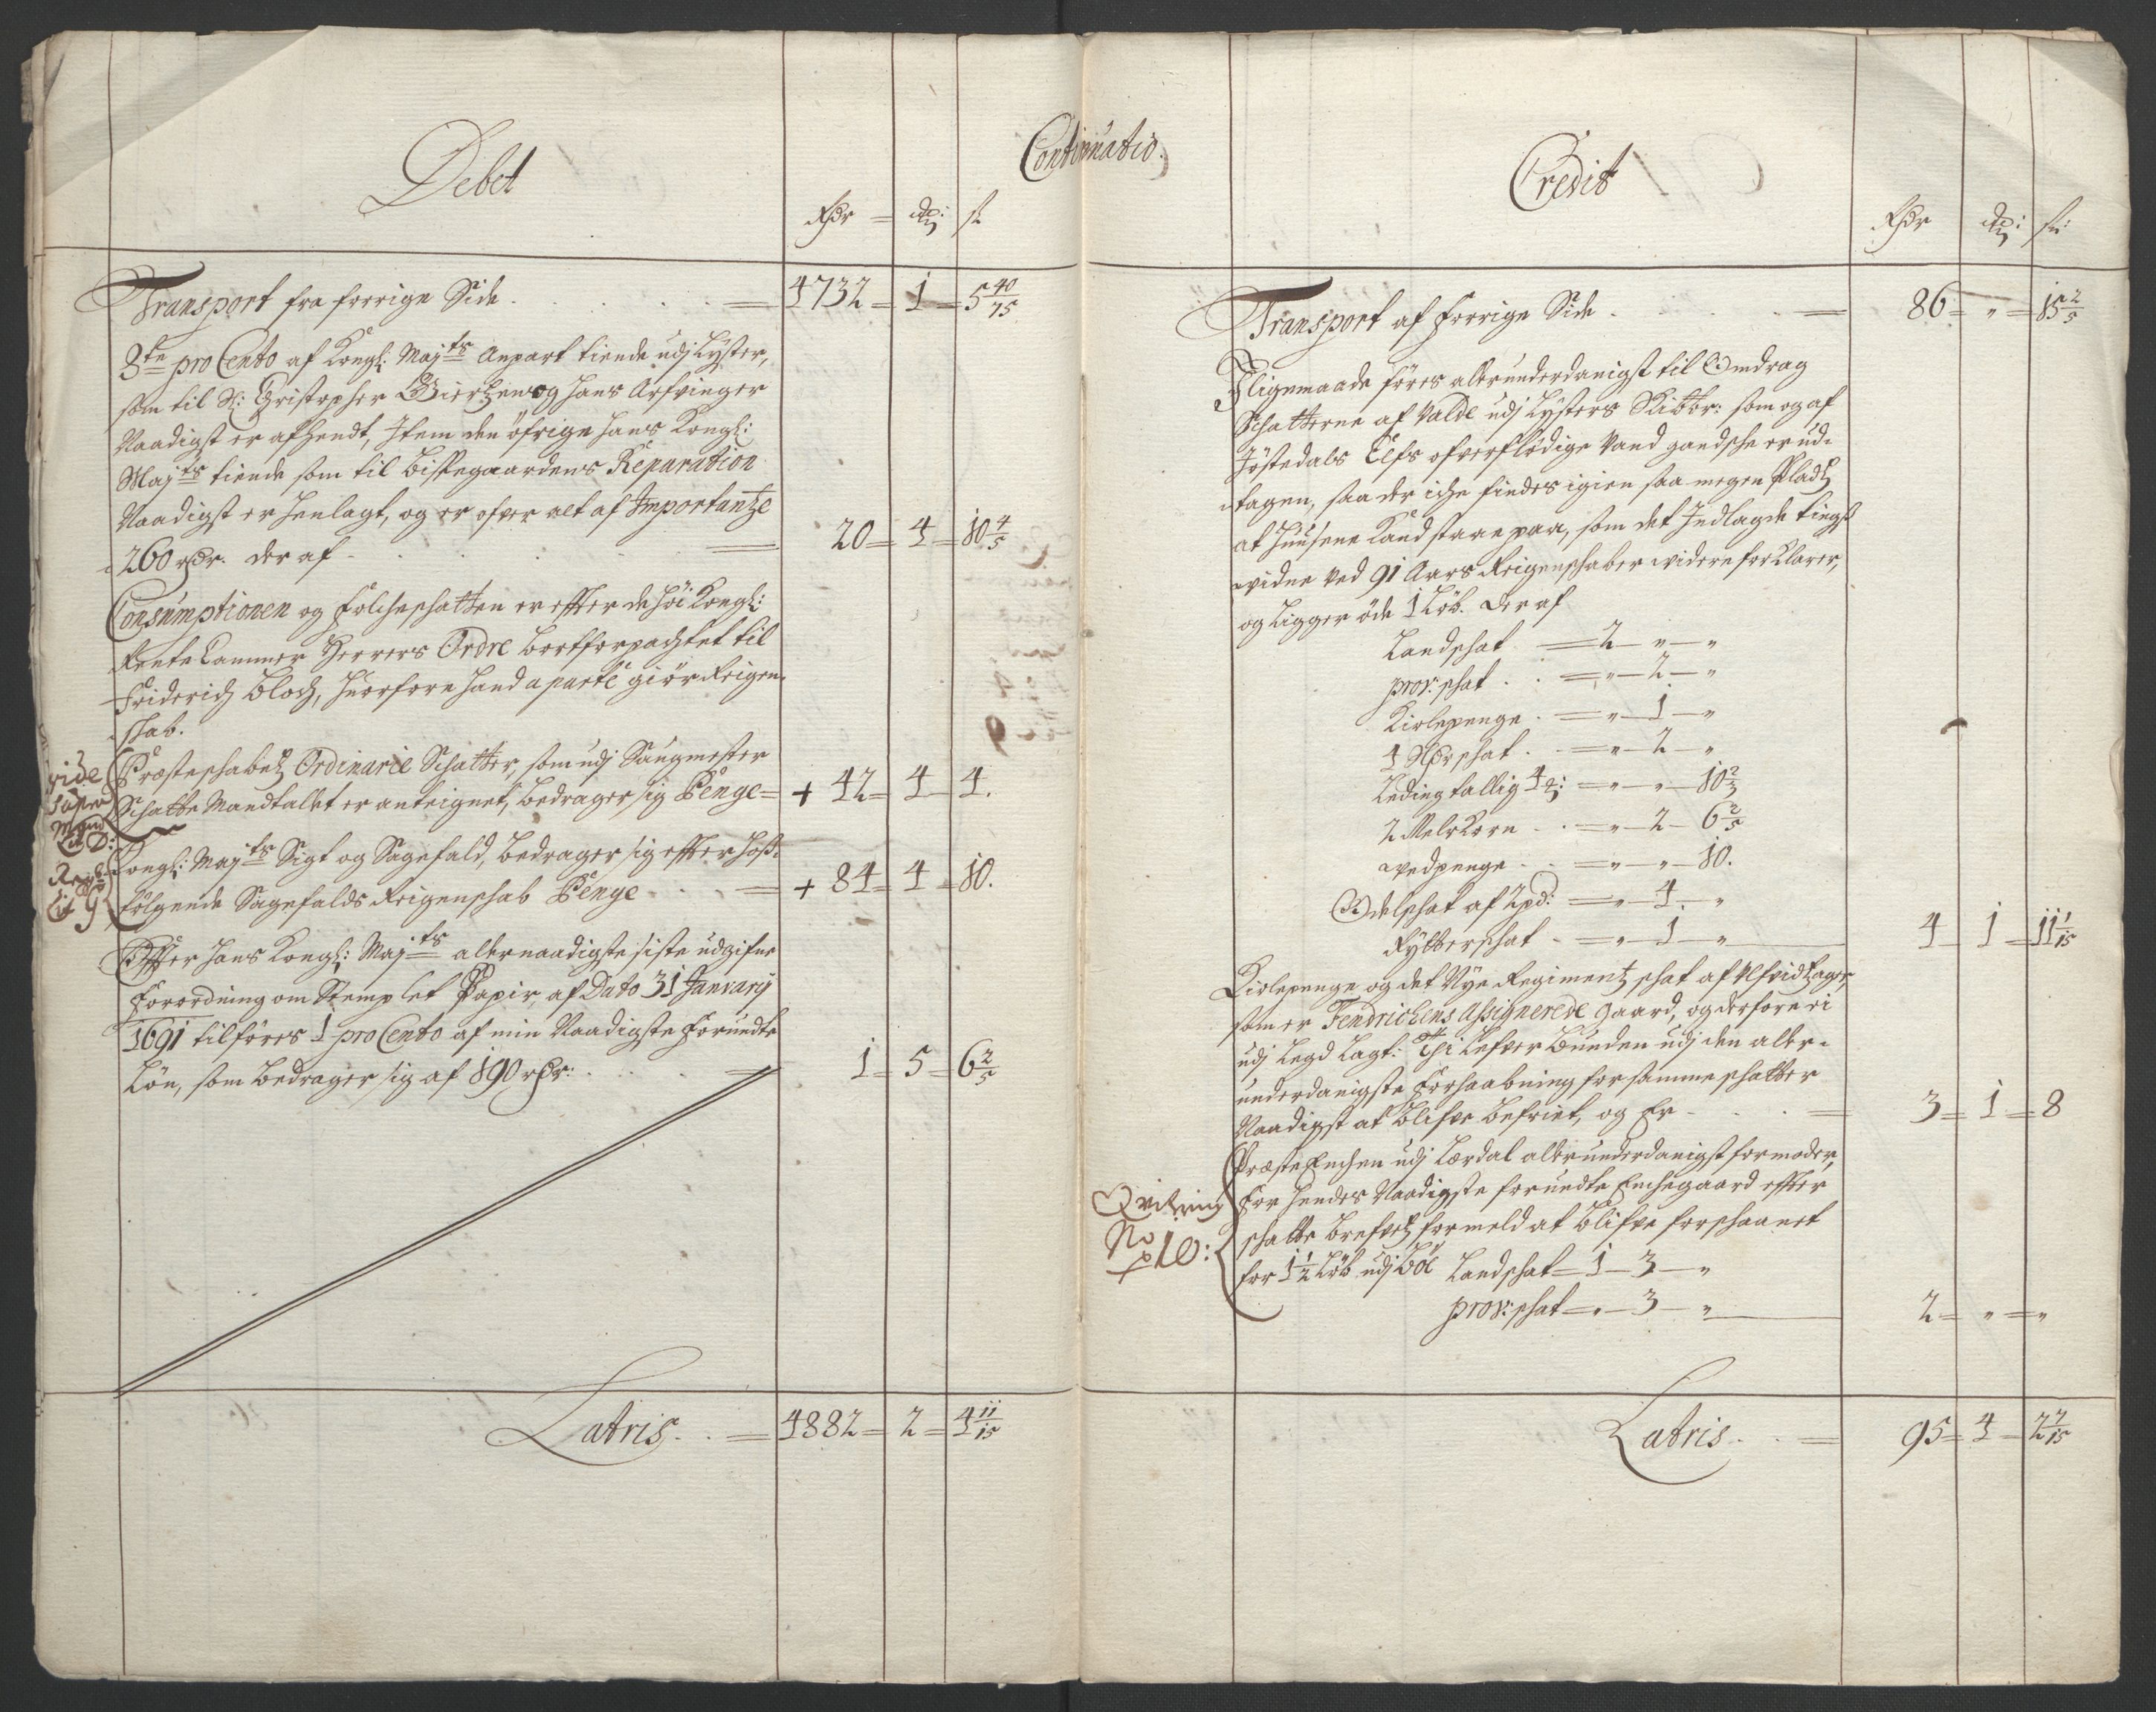 Continuatio.
Debet
Rdr = mk: sk
Transport fra forrige Side . . . . = 4732 = 1 = 5 40/75
8te pro Cento af Kongl: Majts Anpart tiende udj Lyster,
som til Sl: Christopher Giertzen og hans Arfvinger
Naadigst er afhendt, Item den öfrige hans Kongl:
Majts tiende som til Bispegaardens Reparation
Naadigst er henlagt, og er ofver alt af Importantze
260 rdr. der af . . . = 20 = 4 = 10 4/5
Consumptionen og Folcheschatten er effter de Höi Kongl:
Rente Cammer Herrers Ordre bortforpachtet til
Friderich Bloch, huorfore hand aparte giör Reigen-
skab.
vide
super
Mand
Lit D:
Præsteschabetz Ordinarie Schatter, som udj Saugmester
Schatte Mandtallet er anteignet, bedrager sig Penge = + 42 = 4 - 4.
Lit G
Kongl: Majts Sigt og Sagefald, bedrager sig effter hoß-
fölgende Sagefalds Reigenschab Penge . . . = + 84 = 4 = 10.
Effter hans Kongl: Majts allernaadigste siste udgifne
Forordning om Stemplet Papir, af Dato 31 Januarij
1691 tilföres 1 pro Cento af min Naadigste forundte
Lön, som bedrager sig af 190 rdr: . . . = 1 = 5 = 6 2/5
Latris . . = 4882 = 2 = 4 11/15
Credit
Rdr mk: sk:
Transport af forrige Side . . . = 86 = " = 15 2/5
Iligemaade föres allerunderdanigst til Omdrag
Schatterne af Valde udj Lysters Skibbr: som og af
Jöstedals Elfs ofverflödige Vand gandsche er ud-
tagen, saa der iche findes igien saa megen Pladtz
at Huusene kand staae paa, som det Indlagde tings
vidne ved 91 Aars Reigenschaber videre forklarer,
og Ligger öde 1 Löb. der af
Landschat = 2 - " - "
prov: schat . . = " - 2 - "
Kirlepenge . = " - 1 - "
1 Rdr schat . . = " - 2 - "
Leding fallig 4 = " - " - 10 2/3
2 Mels Korn . . = " - 2 - 6 2/5
vedpenge . . = " - " - 10.
Odelschat af 2 pd: = " - 4 - "
Rytterschat . = " - 1 - " 4 - 1 = 11 1/15
Kirlepenge og det Nye Regimentz schat af
som er Fendrichens Assignerede gaard, og derfore ei
udj Legd Lagt: Thi Lefver Bunden udj den aller-
underdanigste forhaabning for samme schatter
Naadigst at blifve befriet, og Er . . . = 3 = 1 = 8
Qvitering
No
10:
Præste Enchen udj Lærdal allerunderdanigst formoder,
for hendes Naadigste forundte Enchegaard effter
schatte brefvetz formeld at blifve forschaanet
for 1 1/2 Löb udj Böe Landschat = 1 - 3 - "
prov: schat = " - 3 - " 2 = " = "
Latris . . = 95 = 4 = 2 7/15